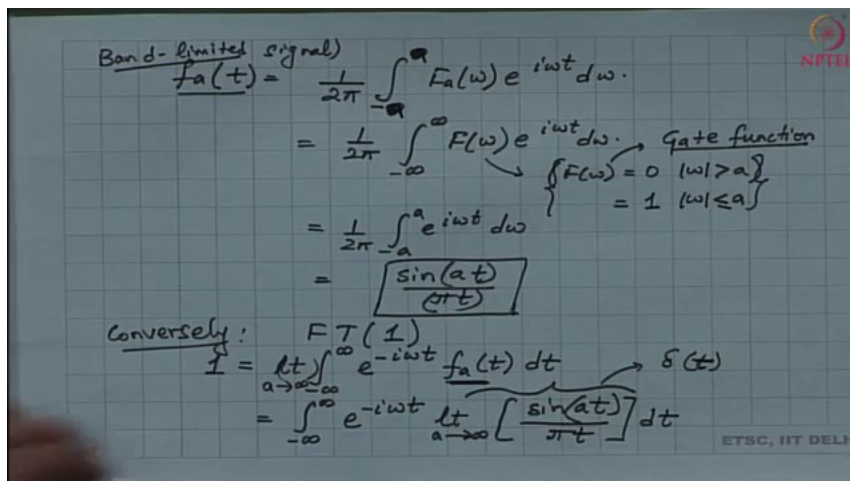 Band-limited signal)
fa(t) = 1/2π ∫_{-a}^{a} Fa(ω) e^{iωt} dω.
= 1/2π ∫_{-∞}^{∞} F(ω) e^{iωt} dω. Gate function
{F(ω) = 0 |ω| > a}
{= 1 |ω| ≤ a}
= 1/2π ∫_{-a}^{a} e^{iωt} dω
= sin(at)/(πt)
Conversely: FT(1)
1 = lt_{a→∞} ∫_{-∞}^{∞} e^{-iωt} fa(t) dt → δ(t)
= ∫_{-∞}^{∞} e^{-iωt} lt_{a→∞} [sin(at)/πt] dt
NPTEL
ETSC, IIT DELH